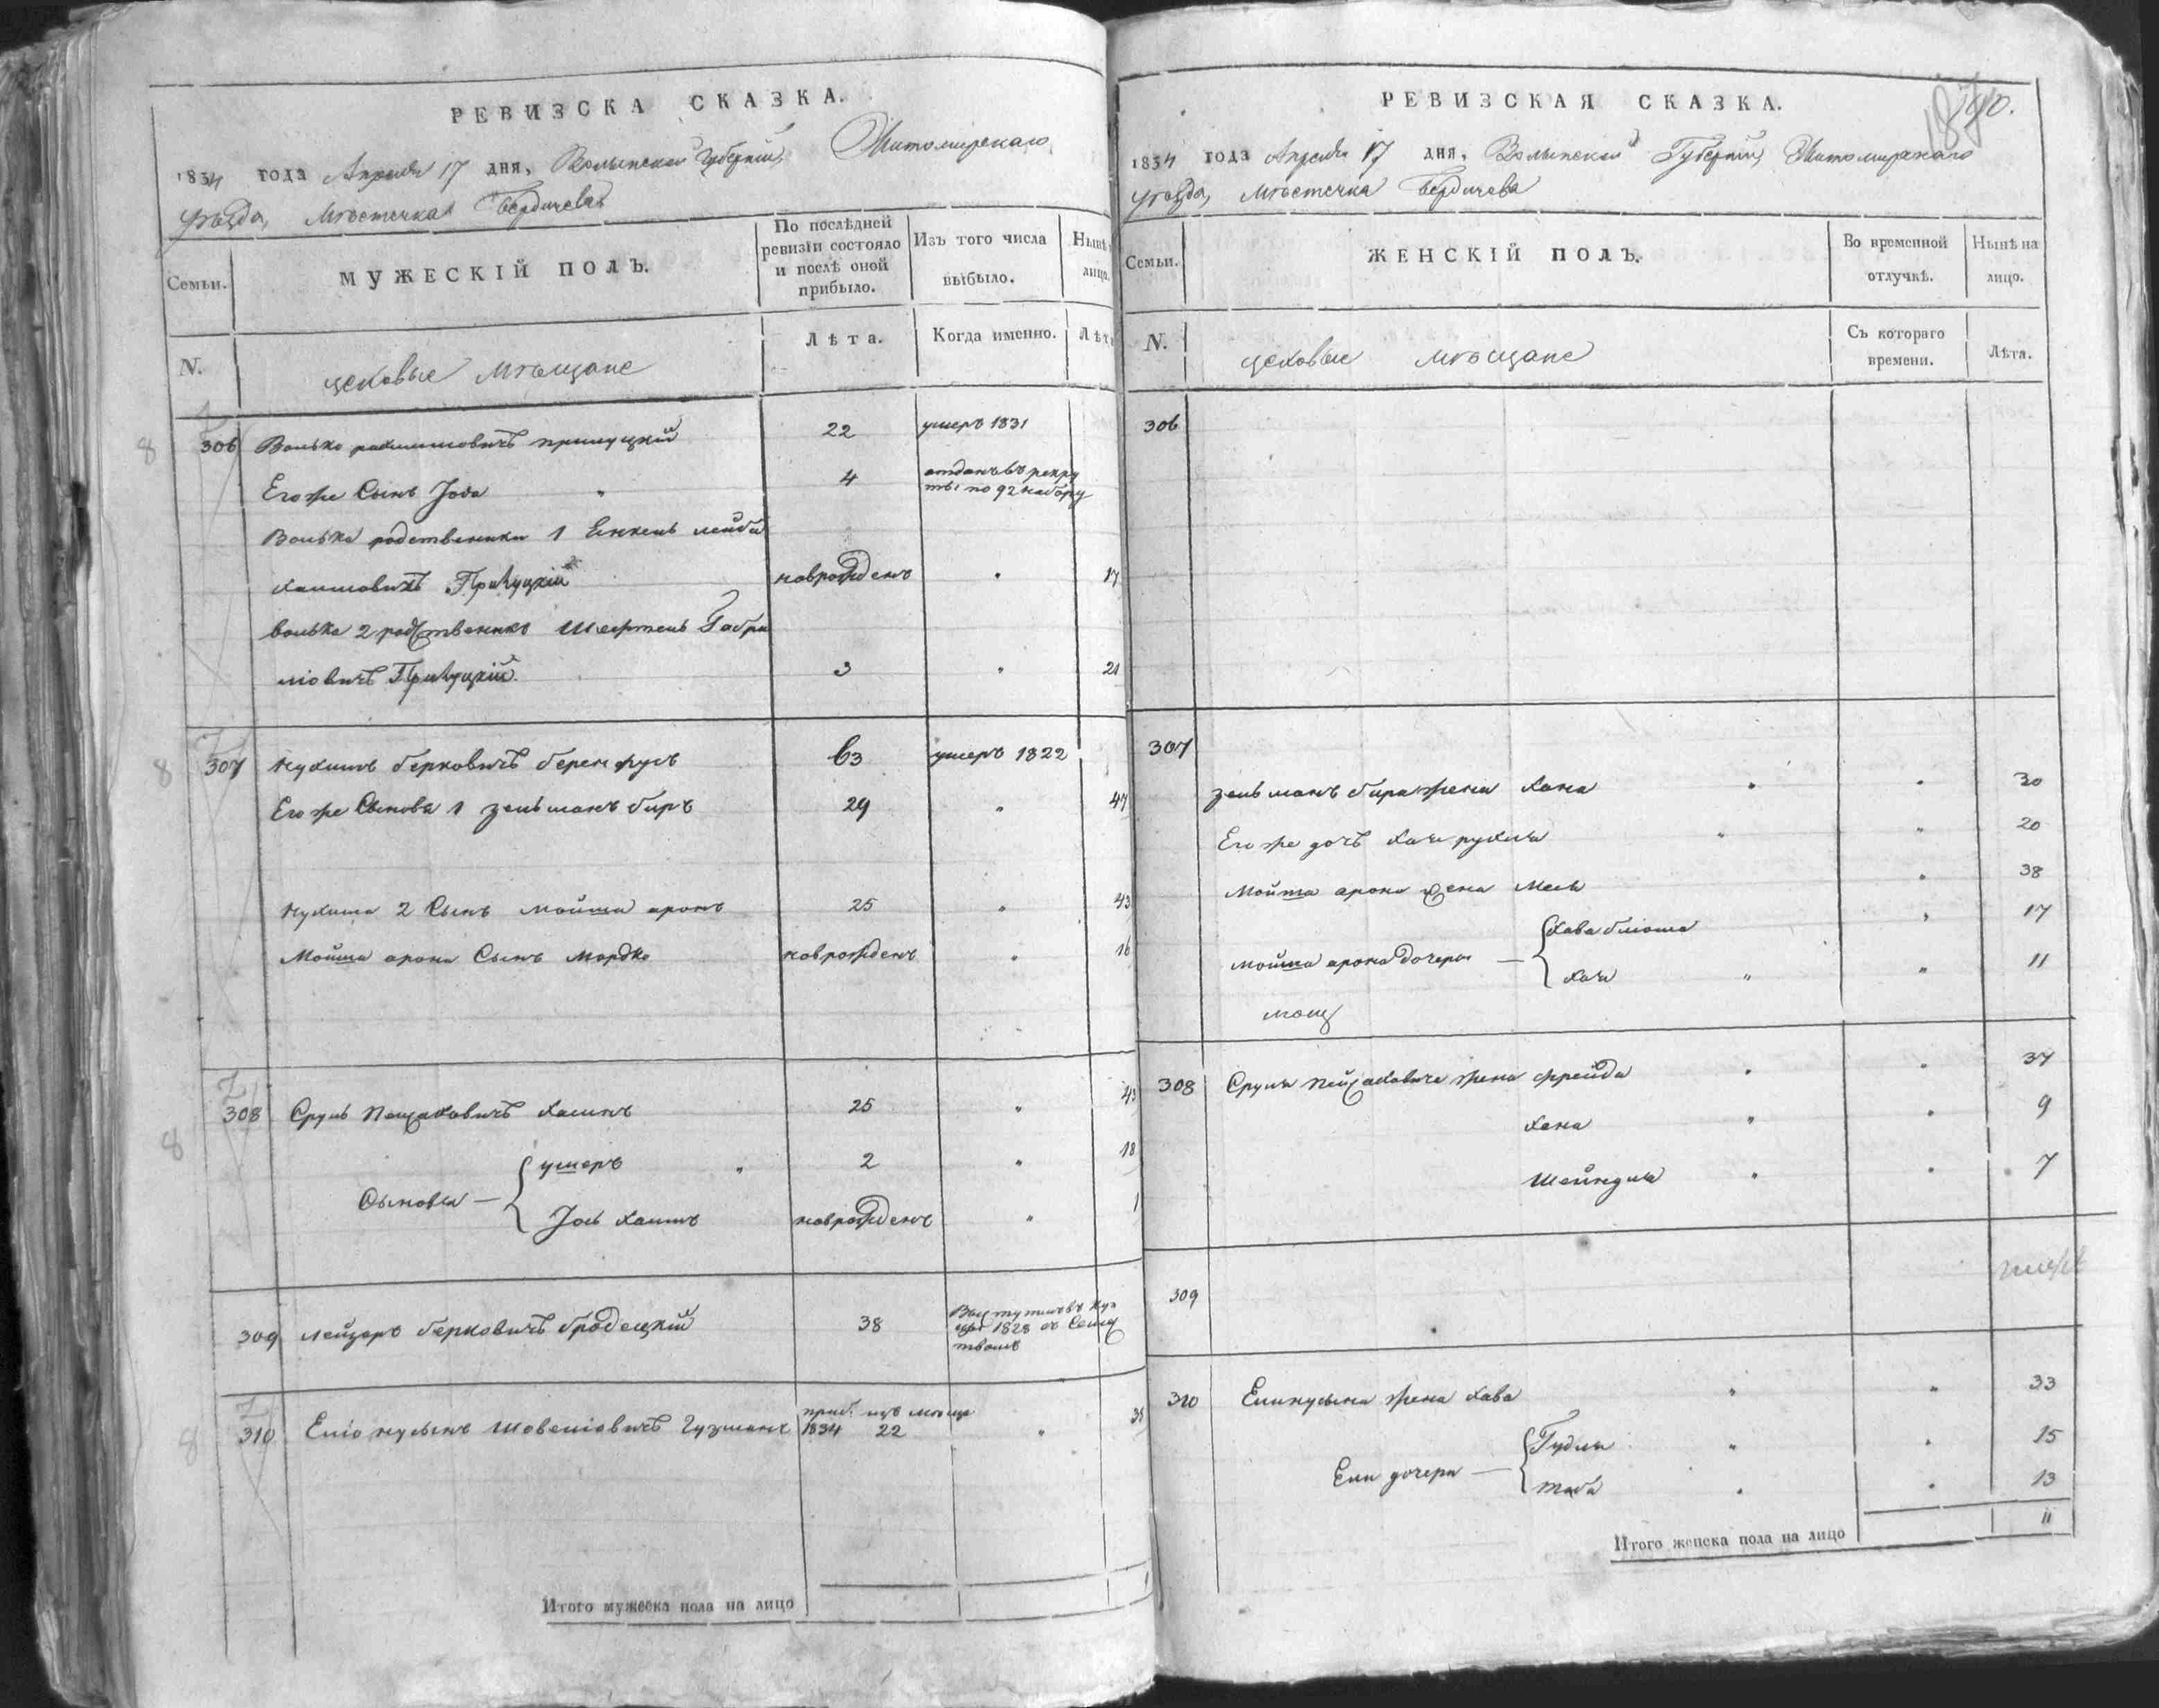 РЕВИЗСКА СКАЗКА.
1834 года Апреля 17 дня, Волынской Губерніи, Житомирскаго
уѣзда, Мѣстечка Бердичева
Семьи.
МУЖЕСКІЙ ПОЛЪ.
По послѣдней
ревизіи состояло
и послѣ оной
прибыло.
Изъ того числа
выбыло.
Нынѣ
лицо.
N.
цеховые мѣщане
Лѣта.
Когда именно.
Лѣт
306 Волько рахмиловичъ прилуцкій 22 умеръ 1831
Его же Сынъ Јова " 4 отданъ въ рекру
ты по 92 набору
Волька родственики 1 Енкель лейба
хаимовичъ Прилуцкій новрожденъ " 17
волька 2 родственикъ Шефтель Габри
ліовичъ Прилуцкій 3 " 21
307 нухимъ берковичъ 63 умеръ 1822
Его же Сынове 1 зельманъ биръ 29 " 47
нухима 2 Сынъ мойша аронъ 25 " 43
Мойша арона Сынъ Мордко новрожденъ " 16
308 Сруль Пейсаховичъ 25 " 43
Сыновья — { ушеръ " 2 " 18
Јось хаимъ новрожденъ " 1
309 лейзоръ берковичъ бродецкій 38
1828 съ Семей
твомъ
310 Еліо нусынъ Гузманъ
1834 22 " 38
8
8
8
8
Итого мужеска пола на лицо
РЕВИЗСКАЯ СКАЗКА.
90.
1834 года Апреля 17 дня, Волынской Губерніи, Житомирскаго
уѣзда, мѣстечка бердичева
Семьи.
ЖЕНСКІЙ ПОЛЪ.
Во временной
отлучкѣ.
Нынѣ на
лицо.
N.
цеховые мѣщане
Съ котораго
времени.
Лѣта.
306
307
зельманъ бира жена хана " " 30
Его же дочь хаи рухля " " 20
Мойша арона жена " 38
мойша арона дочери — { хава блюма " 17
хаи " " 11
308 Сруля пейсаховича жена фрейда " " 37
хана " " 9
шейндля " " 7
309
310 Елинусына жена хава " " 33
Ели дочери — { Гудля " " 15
таба " " 13
Итого женска пола на лицо 11